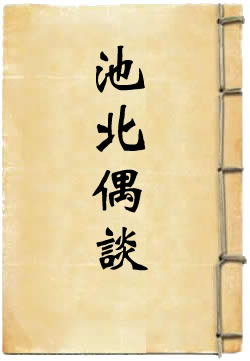 池北偶談